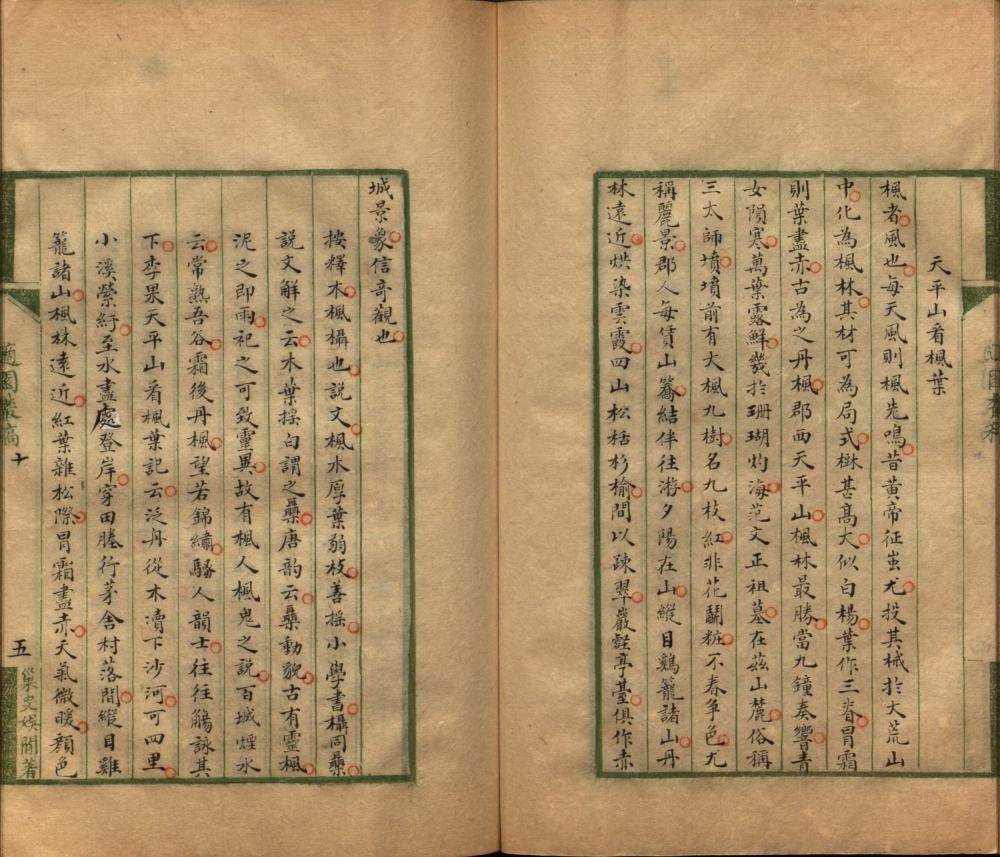 天平山看楓葉
楓者風也每天風則楓先鳴昔黃帝征蚩尤投其械於大荒山
中化為楓林其材可為局式楙甚髙大似白楊葉作三脊冒霜
則葉盡赤古為之丹楓郡西天平山楓林最勝當九鐘奏響青
女隕寒萬葉露鮮幾於珊瑚灼海范文正祖墓在茲山麓俗稱
三太師墳墳前有大楓九樹名九枝紅非花鬭粧不春爭色尤
稱麗景郡人每賃山轎結伴往游夕陽在山縱目鷄籠諸山丹
林遠近烘染雲霞四山松栝杉榆間以疎翠巖壑亭臺俱作赤
城景象信奇觀也
按釋木楓欇也說文楓木厚葉弱枝善搖小學書欇同𣛕
說文解之云木葉搖白謂之𣛕唐韵云𣛕動貌古有靈楓
泥之即雨祀之可致靈異故有楓人楓鬼之說百城煙水
云常熟吾谷霜後丹楓望若錦繡騷人韻士往往觴詠其
下李果天平山看楓葉記云泛丹從木瀆下沙河可四里
小溪縈紆至水盡處登岸穿田塍行茅舍村落間縱目雞
籠諸山楓林遠近紅葉雜松際冒霜盡赤天氣微暖顏色
適園叢稿
十
五
巢叟娛閒著